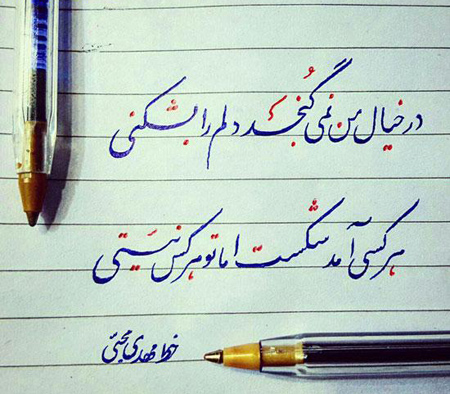 در خیال من نمی گنجد که دلم را بشکنی
هر کسی آمد شکست اما تو هر کس نیستی
خط مهدی محبی